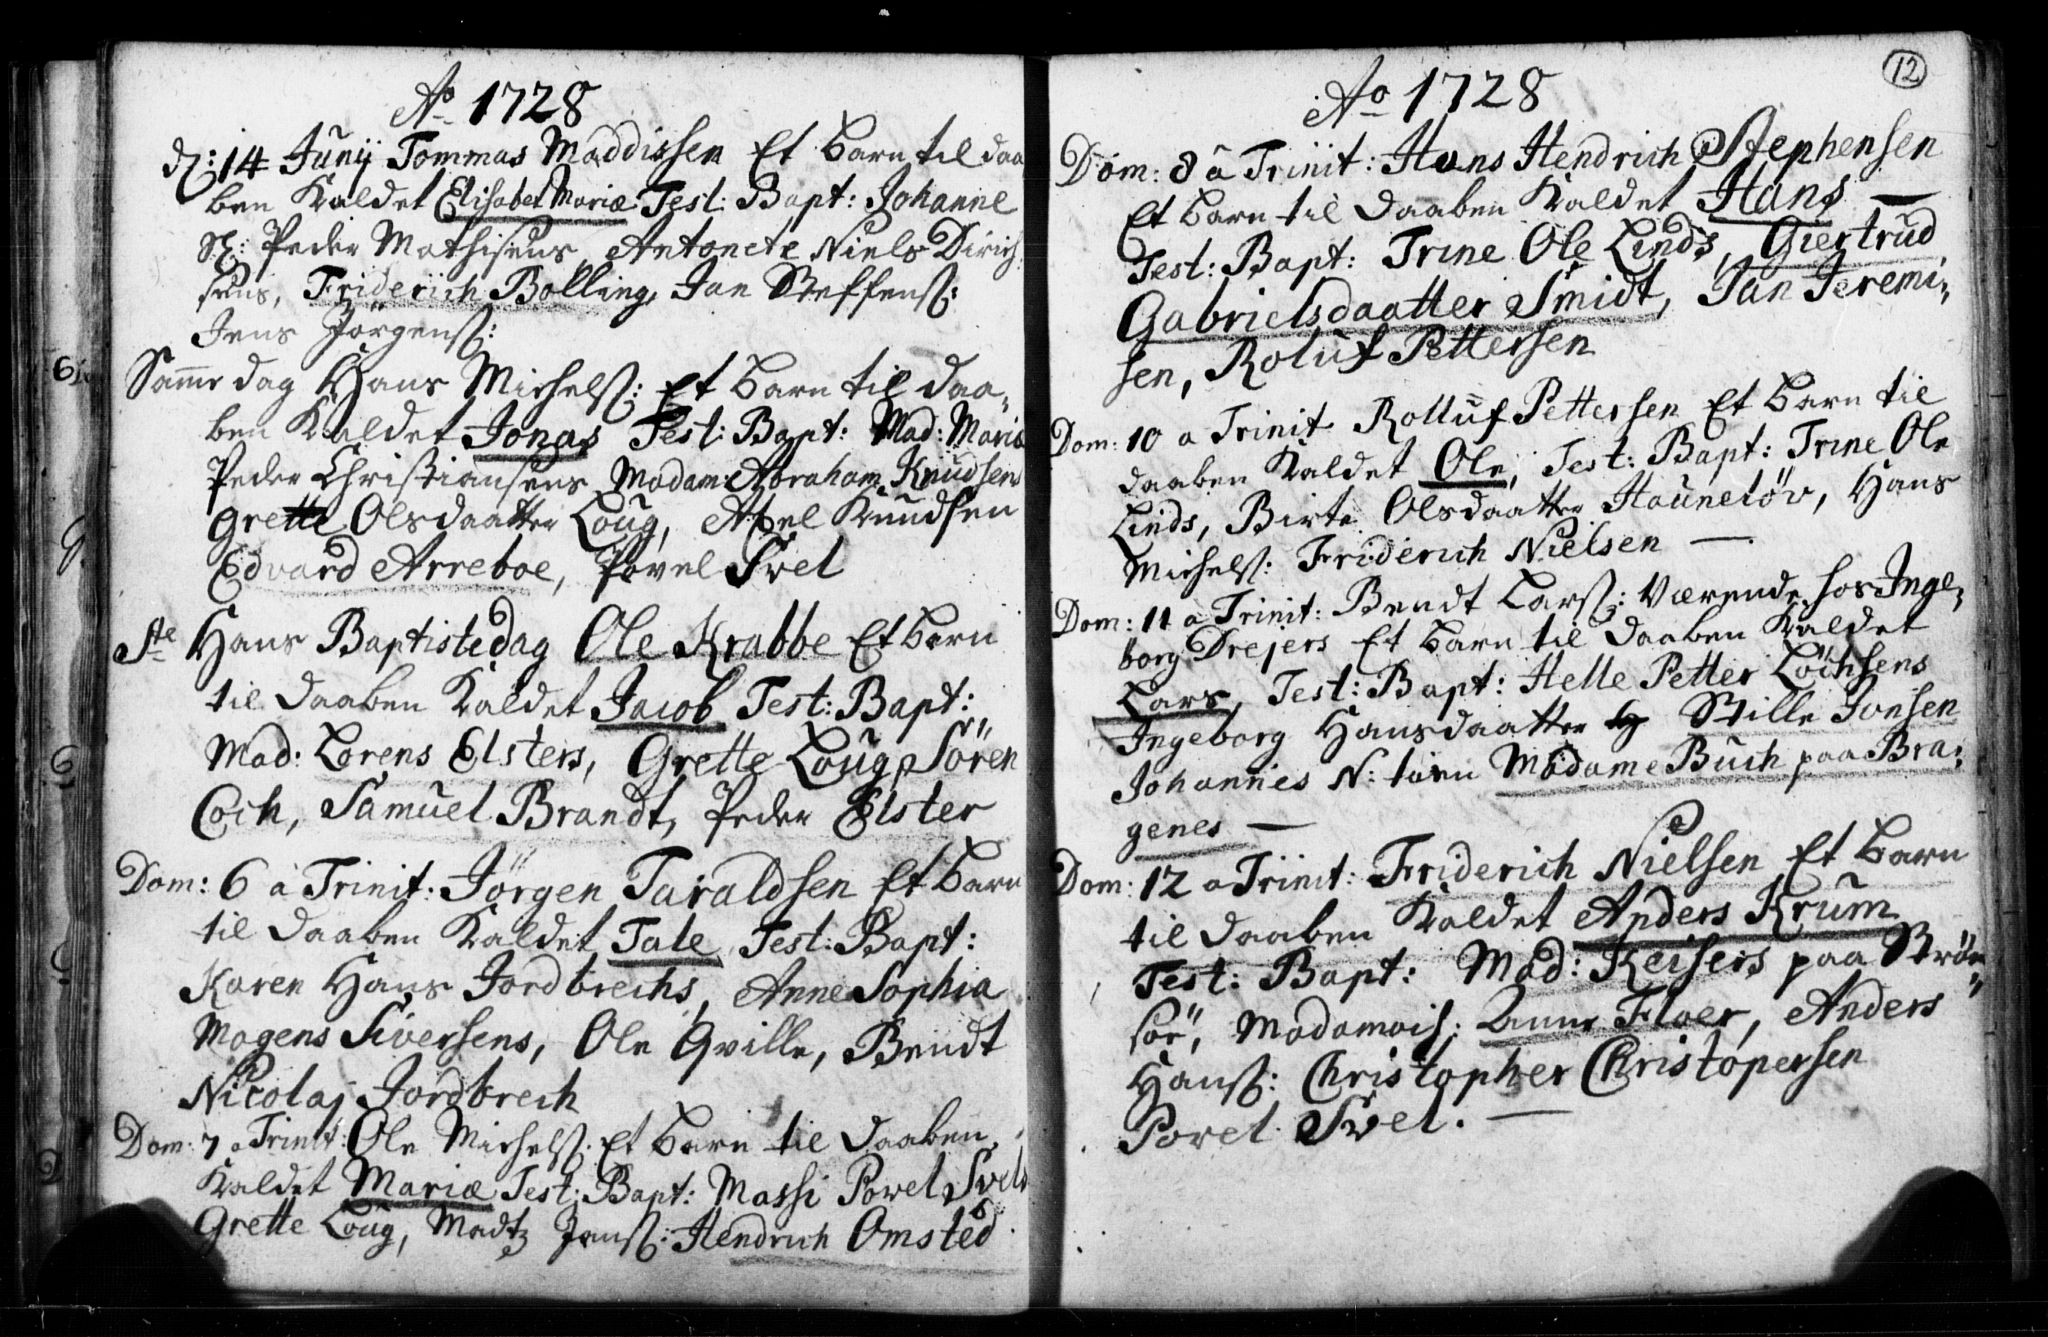 Ao 1728
d: 14 Junij Tommas Maddissen Et barn til daa
ben Kaldet Elisabet Mariæ Test: Bapt: Johanne
Sl: Peder Mathisens, Antonete Niels Dirich
sens, Friderich Bolling, Jan Steffens:
Jens Jörgens:
Samme dag Hans Michels: Et barn til daa„
ben Kaldet Jonas Test: Bapt: Mad: Mariæ
Peder Christiansens, Madam: Abraham Knudsens
Grette Olsdaatter Loug, Abel Knudsen
Edvard Arreboe, Povel Svel
Ste Hans Baptistedag Ole Krabbe Et barn
til daaben Kaldet Jacob Test: Bapt:
Mad: Lorens Elsters, Grette Loug, Sören
Coch, Samuel Brandt, Peder Elster
Dom: 6 a Trinit: Jörgen Taraldsen Et barn
til daaben Kaldet Tale Test: Bapt:
Karen Hans Jordbrechs, Anne Sophia
Mogens Siversens, Ole Qville, Bendt
Nicolaj Jordbrech
Dom: 7 a Trinit: Ole Michels: Et barn til daaben
Kaldet Mariæ Test: Bapt: Massi Povel Svels
Grette Loug, Madtz Jens: Hendrich Omsted
12
Ao 1728
Dom: 8 a Trinit: Hans Hendrich Stephensen
Et barn til daaben Kaldet Hans
Test: Bapt: Trine Ole Linds, Giertrud
Gabrielsdaatter Smidt, Jan Jeremi„
sen, Roluf Pettersen
Dom: 10 a Trinit Rolluf Pettersen Et barn til
daaben Kaldet Ole, Test: Bapt: Trine Ole
Linds, Birte Olsdaatter Haunelöv, Hans
Michels: Friderich Nielsen
Dom: 11 a Trinit: Bendt Lars: Værende hos Inge„
borg Drejers Et barn til daaben Kaldet
Lars, Test: Bapt: Helle Petter Löchsens
Ingeborg Hansdaatter Stille Jonsen
Johannes N: Madame Buch paa Bra„
genes
Dom: 12 a Trinit: Friderich Nielsen Et barn
til daaben Kaldet Anders Krum
Test: Bapt: Mad: Keisers paa Ström„
söe, Madamois: Anne Floer, Anders
Hans: Christopher Christopersen
Povel Svel.